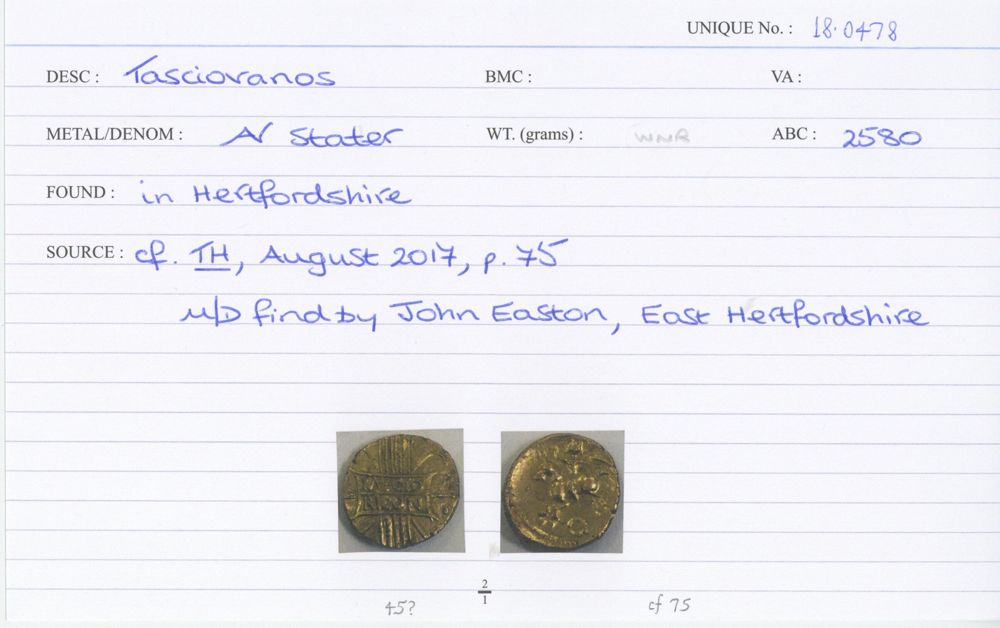 UNIQUE No. : 18.0478
DESC : Tasciovanos BMC : VA :
METAL/DENOM : AV Stater WT. (grams) : WNR ABC : 2580
FOUND : in Hertfordshire
SOURCE : cf. TH, August 2017, p. 75
M/D find by John Easton, East Hertfordshire
2
1
45? cf 75